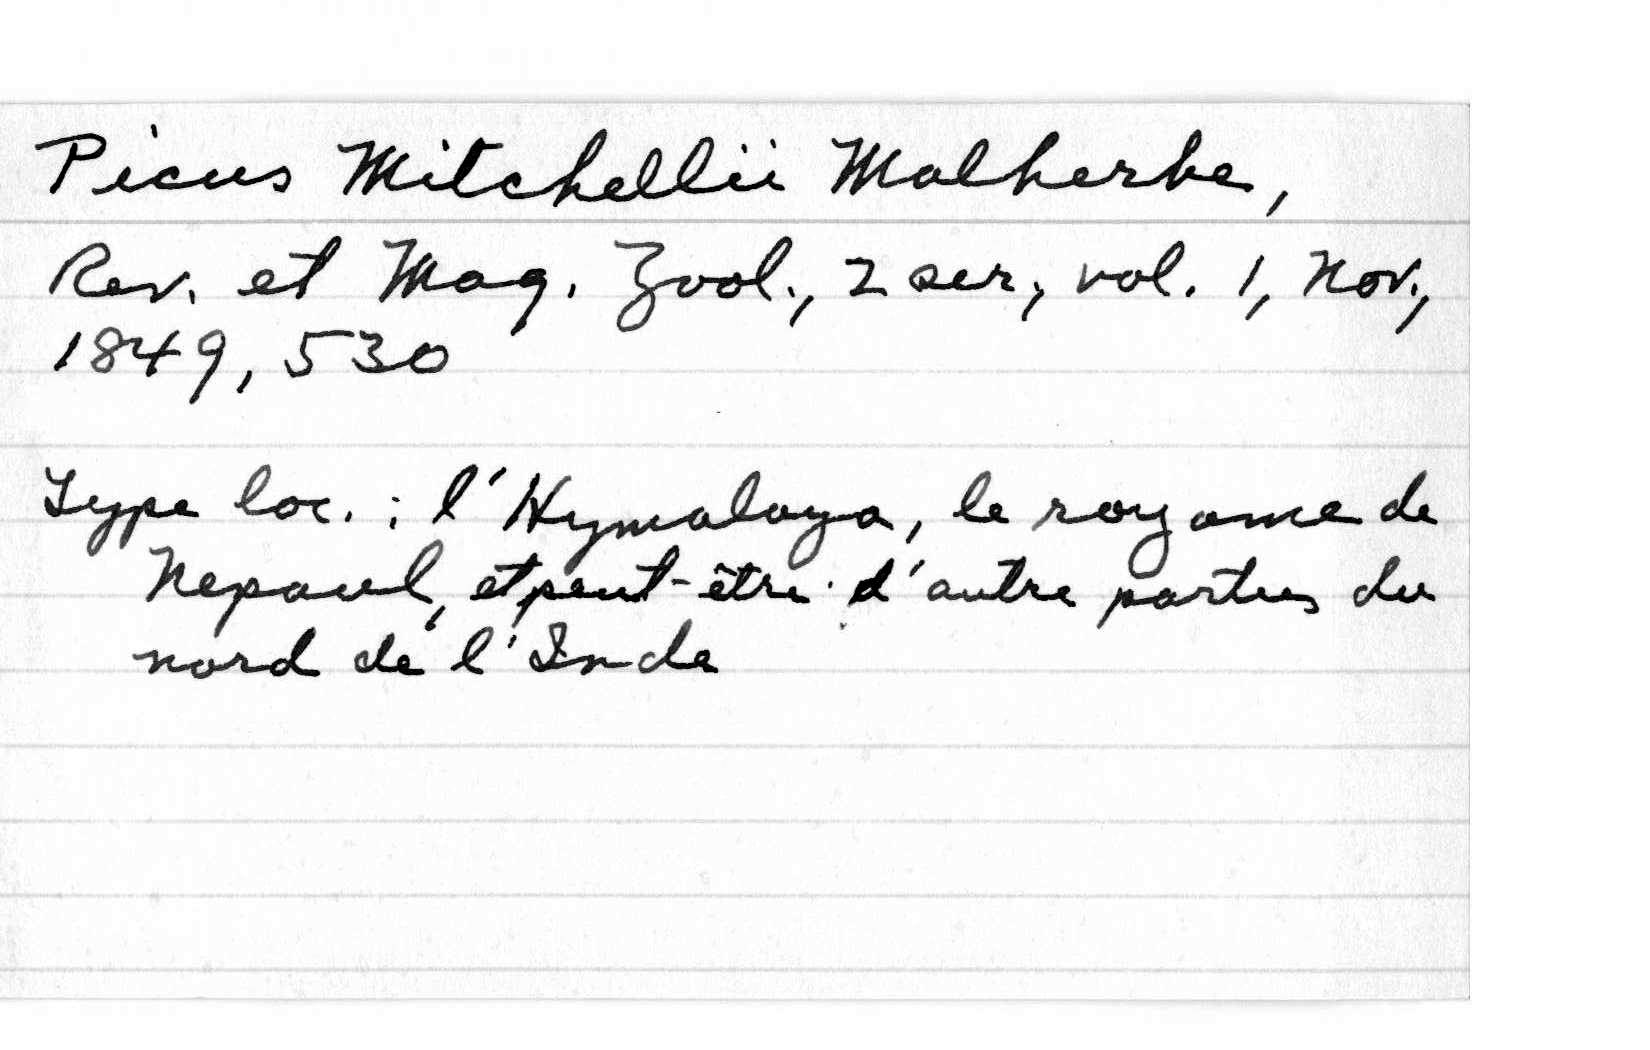 Picus Mitchellii Malherbe,
Rev. et Mag. Zool., 2 ser, vol. 1, Nov.,
1849, 530
Type loc. : l'Hymalaya, le royame de
Nepaul, et peut-être d'autre parties du
nord de l'Inde